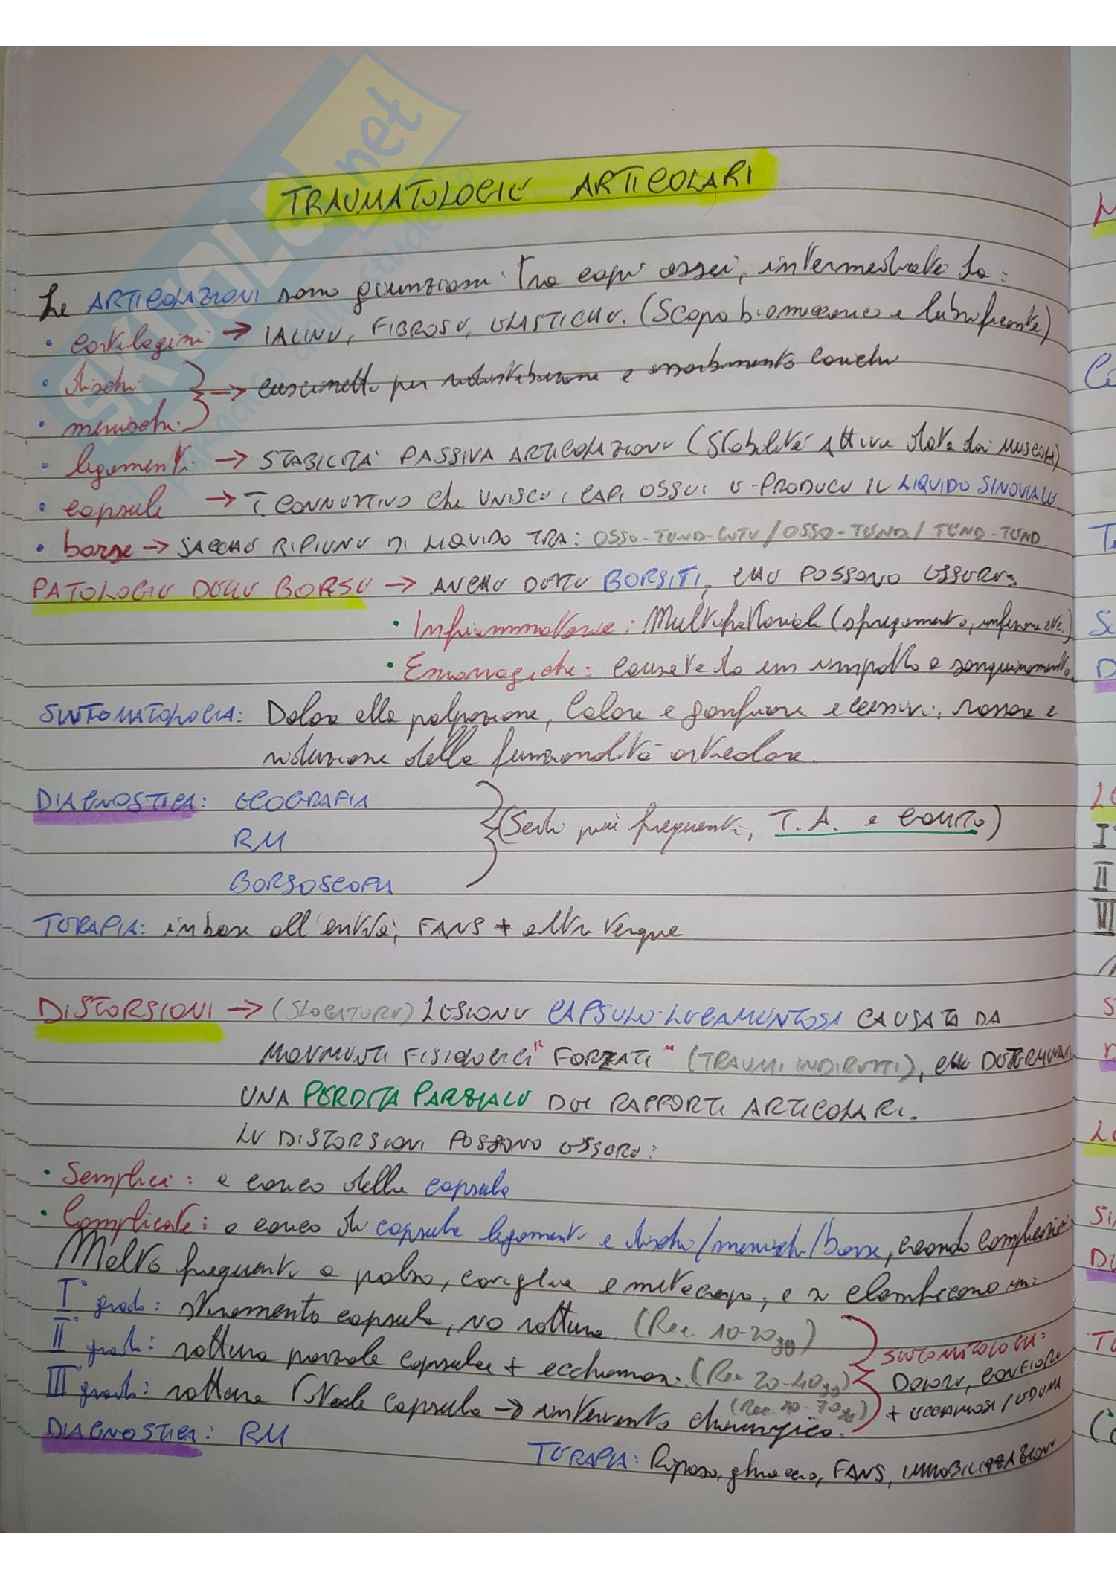 SKUOLA.net
TRAUMATOLOGIE ARTICOLARI
Le ARTICOLAZIONI sono giunzioni tra capi ossei, intermediate da:
• cartilagini → IALINE, FIBROSE, ELASTICHE. (Scopo biomeccanico e lubrificante)
• dischi
→ cuscinetto per ridistribuzione e assorbimento carichi
• menischi
• legamenti → STABILITÀ PASSIVA ARTICOLAZIONE (Stabilità attiva data dai MUSCOLI)
• capsule → T. CONNETTIVO CHE UNISCE I CAPI OSSEI E PRODUCE IL LIQUIDO SINOVIALE
• borse → SACCHE RIPIENE DI LIQUIDO TRA: OSSO-TEND-CUTE / OSSO-TEND / TEND-TEND
PATOLOGIE DELLE BORSE → ANCHE DETTE BORSITI, CHE POSSONO ESSERE:
• Infiammatorie: Multifattoriale (sfregamento, infezione etc.)
• Emorragiche: causate da un impatto e sanguinamento
SINTOMATOLOGIA: Dolore alla palpazione, Calore e gonfiore eccessivi, rossore e
riduzione della funzionalità articolare
DIAGNOSTICA: ECOGRAFIA
(Sedi più frequenti, T.A. e GOMITO)
RM
BORSOSCOPIA
TERAPIA: in base all'entità, FANS + altre terapie
DISTORSIONI → (SLOGATURE) LESIONE CAPSULO-LEGAMENTOSA CAUSATA DA
MOVIMENTI FISIOLOGICI "FORZATI" (TRAUMI INDIRETTI), CHE DETERMINANO
UNA PERDITA PARZIALE DEI RAPPORTI ARTICOLARI.
LE DISTORSIONI POSSONO ESSERE:
• Semplici: a carico della capsula
• Complicate: a carico di capsula legamenti e dischi/menischi/borse, creando complessità
Molto frequenti a polso, caviglia e metacarpo, e si classificano in:
I° grado: stiramento capsula, NO rottura (Rec. 10-20gg)
II° grado: rottura parziale capsula + ecchimosi. (Rec 20-40gg)
SINTOMATOLOGIA:
DOLORE, GONFIORE
+ ECCHIMOSI / EDEMA
III° grado: rottura totale capsula → intervento chirurgico. (Rec. 40-70gg)
DIAGNOSTICA: RM
TERAPIA: Riposo, ghiaccio, FANS, IMMOBILIZZAZIONE